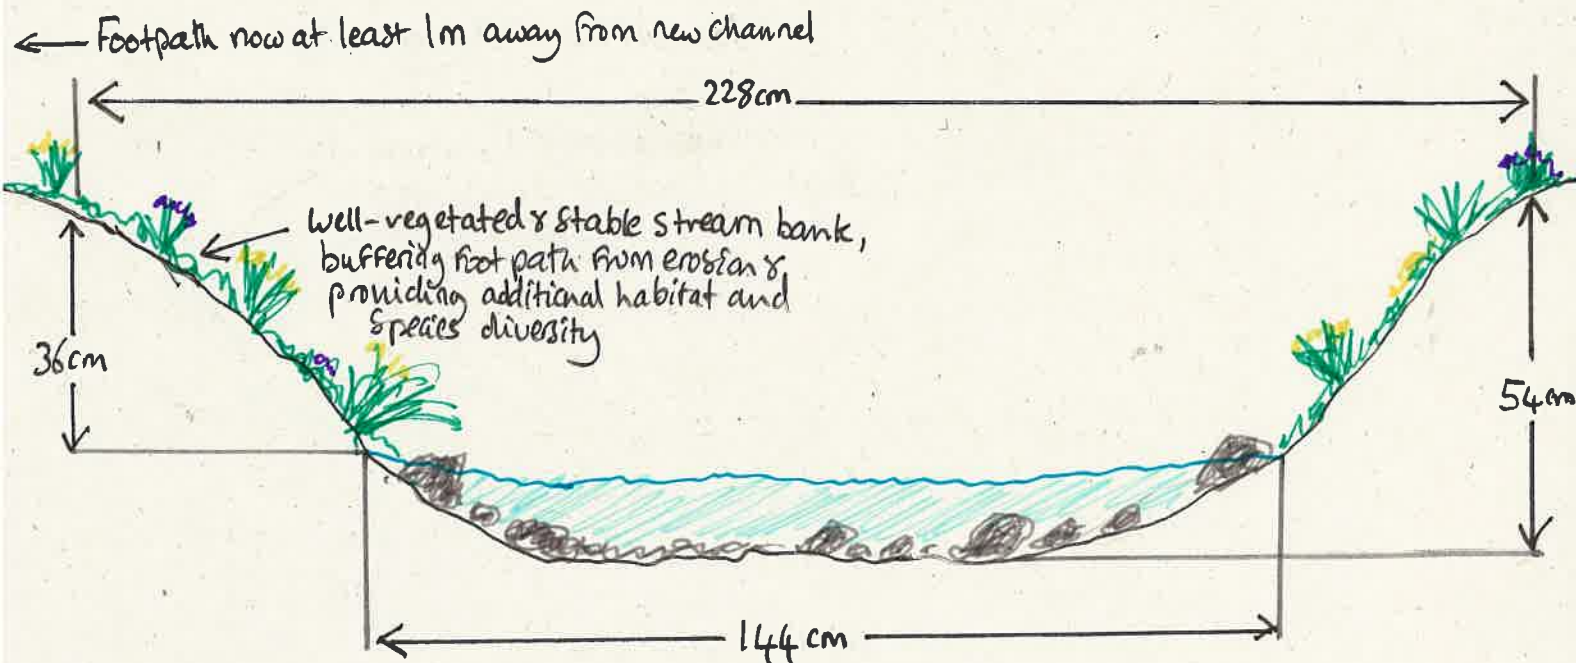 ← Footpath now at least 1m away from new channel
228cm
Well-vegetated & stable stream bank,
buffering footpath from erosion &
providing additional habitat and
species diversity
36cm
54cm
144cm